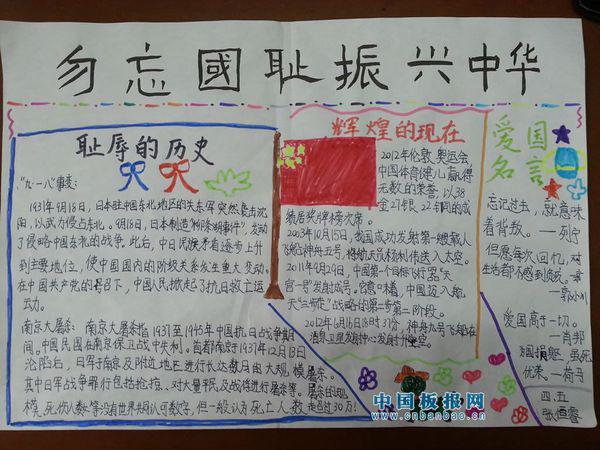 勿忘國耻振兴中华
耻辱的历史
"九·一八"事变:
1931年9月18日,日本驻中国东北地区的关东军突然袭击沈
阳,以武力侵占东北。9月18日,日本制造
发动了侵略中国东北的战争。此后,中日民族矛盾逐步上升
到主要地位,使中国国内的阶级关系发生重大变动。
在中国共产党的号召下,中国人民掀起了抗日救亡运
动。
南京大屠杀: 南京大屠杀指1937至1945年中国抗日战争期
间,中国民国在南京保卫战中失利。首都南京于1937年12月13日
沦陷后,日军于南京及附近地区进行长达数月的大规模屠杀。
其中日军战争罪行包括抢掠、对大量平民及战俘进行屠杀等。屠杀的规
模、死伤人数等没有世界共同认可数字,但一般认为死亡人数超过30万!
辉煌的现在
2012年伦敦奥运会,
中国体育健儿赢得
无数的荣誉,以38
金27银22铜的成
绩居奖牌榜次席。
2003年10月15日,我国成功发射第一艘载人
飞船神舟五号,将航天员杨利伟送入太空。
2011年9月29日,中国第一个目标飞行器"天
宫一号"发射成功。它意味着,中国迈入航
天"三步走"战略的第二步第二阶段。
2012年6月16日18时37分,神舟九号飞船在
酒泉卫星发射中心发射升空。
爱国
名言
忘记过去,就意味
着背叛。—列宁
但愿每次回忆,对
生活都不感到负疚。
—郭小川
爱国高于一切。
—肖邦
为国捐躯,虽死
优荣。—荷马
四.五
张恒睿
中国板报网
www.cnbanbao.cn